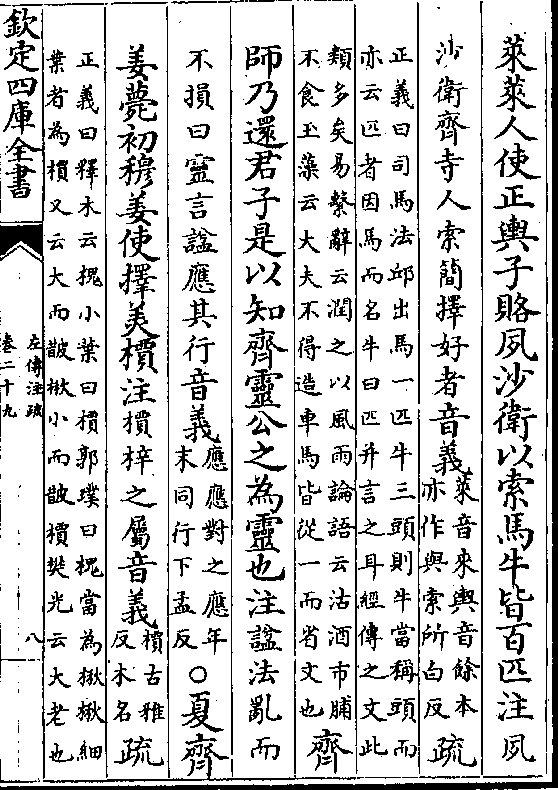 萊萊人使正輿子賂夙沙衛以索馬牛皆百匹注夙
沙衛齊寺人索簡擇好者音義萊音來輿音餘本
亦作與索所白反疏
正義曰司馬法邱出馬一匹牛三頭則牛當稱頭而
亦云匹者因馬而名牛曰匹并言之耳經傳之文此
類多矣易繫辭云潤之以風雨論語云沽酒市脯
不食玉藻云大夫不得造車馬皆從一而省文也齊
師乃還君子是以知齊靈公之為靈也注諡法亂而
不損曰靈言諡應其行音義應應對之應年
末同行下孟反○夏齊
姜薨初穆姜使擇美檟注檟梓之屬音義檟古雅
反木名疏
正義曰釋木云槐小葉曰檟郭璞曰槐當為楸楸細
葉者為檟又云大而皵楸小而皵檟樊光云大老也
欽定四庫全書
左傳注疏
卷二十九
八